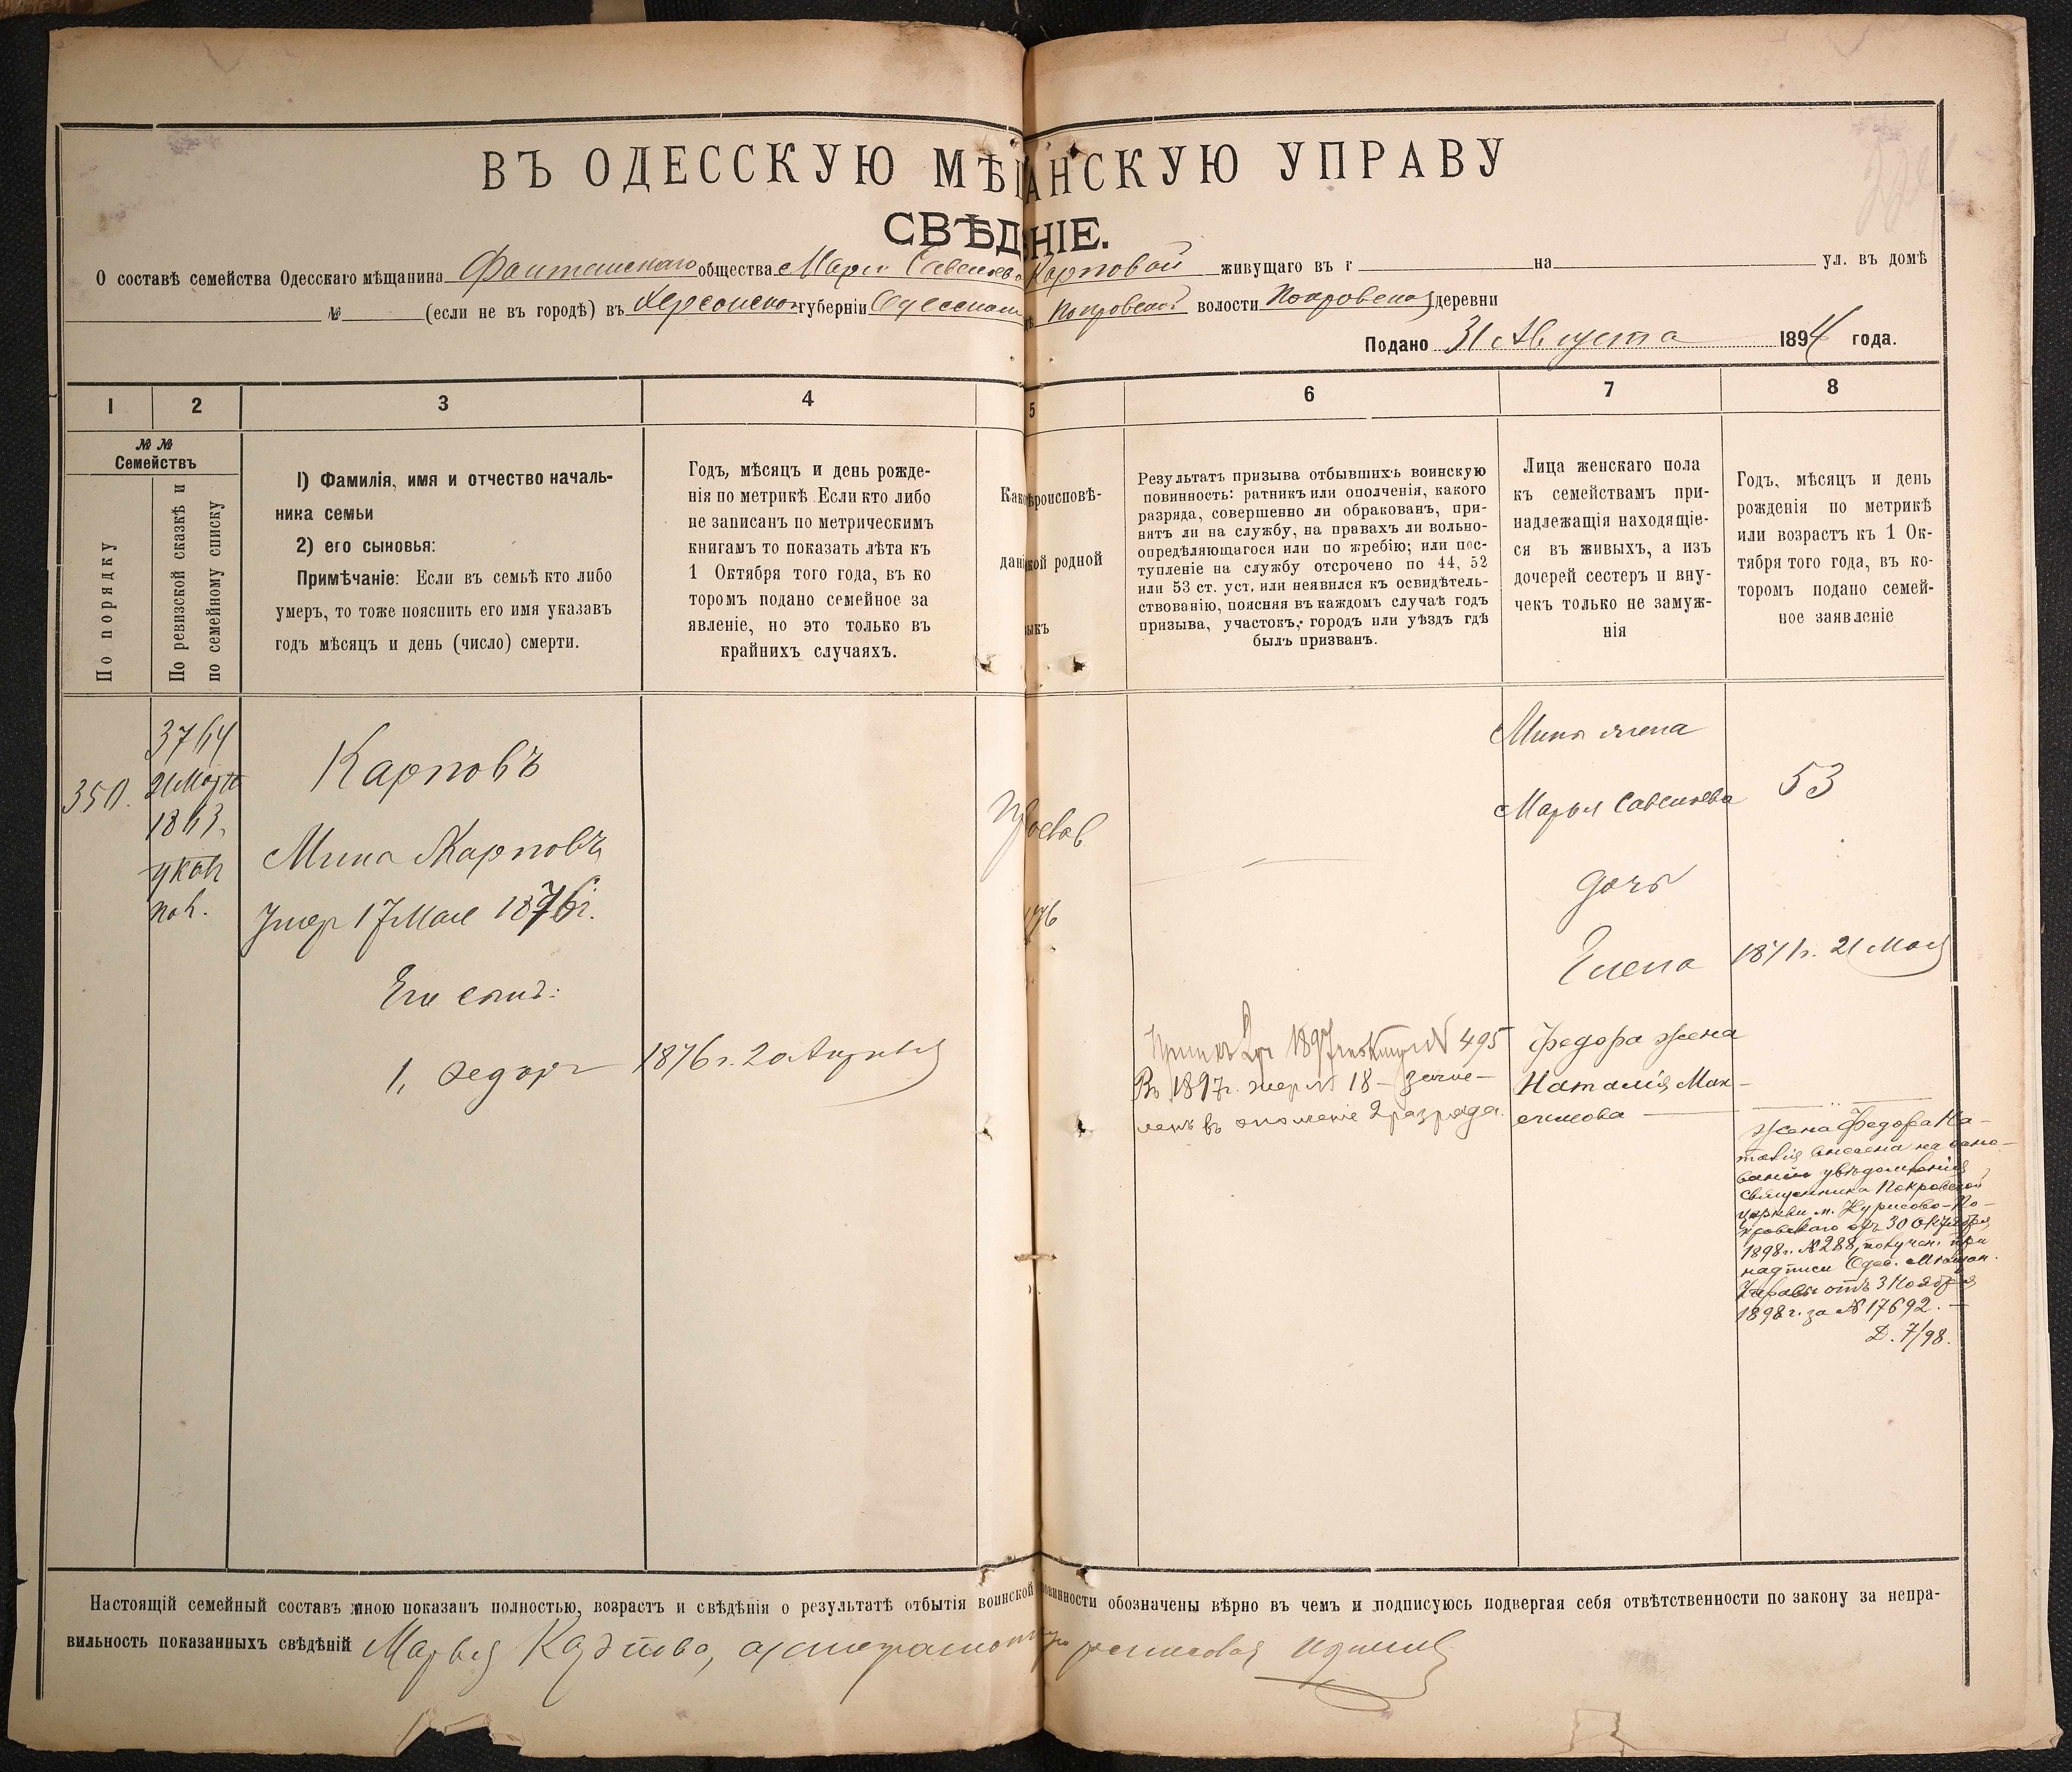 ВЪ ОДЕССКУЮ МѢ АНСКУЮ УПРАВУ
СВѢД НІЕ.
О составѣ семейства Одесскаго мѣщанина Фонтанскаго общества Марьи Савельевой Карповой живущаго въ г на ул. въ домѣ
№ (если не въ городѣ) въ Херсонской губерніи Одесскомъ Покровской волости Покровской деревни
Подано 31 Августа 1894 года.
1 2 3 4 5 6 7 8
№ № Семействъ
По порядку
По ревизской сказкѣ и
по семейному списку
1) Фамилія, имя и отчество началь-
ника семьи
2) его сыновья:
Примѣчаніе: Если въ семьѣ кто либо
умеръ, то тоже пояснить его имя указавъ
годъ мѣсяцъ и день (число) смерти.
Годъ, мѣсяцъ и день рожде-
нія по метрикѣ. Если кто либо
не записанъ по метрическимъ
книгамъ то показать лѣта къ
1 Октября того года, въ ко
торомъ подано семейное за
явленіе, но это только въ
крайнихъ случаяхъ.
Како ѣроисповѣ-
дані кой родной
ыкъ
Результатъ призыва отбывшихъ воинскую
повинность: ратникъ или ополченія, какого
разряда, совершенно ли обракованъ, при-
нятъ ли на службу, на правахъ ли вольно-
опредѣляющагося или по жребію; или пос-
тупленіе на службу отсрочено по 44, 52
или 53 ст. уст. или неявился къ освидѣтель-
ствованію, поясняя въ каждомъ случаѣ годъ
призыва, участокъ, городъ или уѣздъ гдѣ
былъ призванъ.
Лица женскаго пола
къ семействамъ при-
надлежащія находящіе-
ся въ живыхъ, а изъ
дочерей сестеръ и вну-
чекъ только не замуж-
нія
Годъ, мѣсяцъ и день
рожденія по метрикѣ
или возрастъ къ 1 Ок-
тября того года, въ ко-
торомъ подано семей-
ное заявленіе
350.
3764
21 Марта
1863.
Карповъ
Мина Карповъ
Умер 17 Мая 1876г.
Его сынъ:
1. Федоръ
1876г. 20 Апрѣля
Мины жена
Марья Савельева
53
дочь
Елена
1871г. 21 Мая
1897 № 495
Въ 1897г. жер № 18 – зачис-
ленъ въ ополченіе 2 разряда.
Федора жена
Наталія Мак-
симова
Жена Федора На-
талія внесена на осно-
ваніи увѣдомленія
священника Покровской
церкви м. Курисово-По-
кровскаго отъ 30 Октября
1898г. № 288, получен. при
надписи Одес. Мѣщан.
Управы отъ 3 Ноября
1898г. за № 17692. –
Д. 7/98.
Настоящій семейный составъ мною показанъ полностью, возрастъ и свѣдѣнія о результатѣ отбытія воинской повинности обозначены вѣрно въ чемъ и подписуюсь подвергая себя отвѣтственности по закону за непра-
вильность показанныхъ свѣдѣній Марья Карпова, а